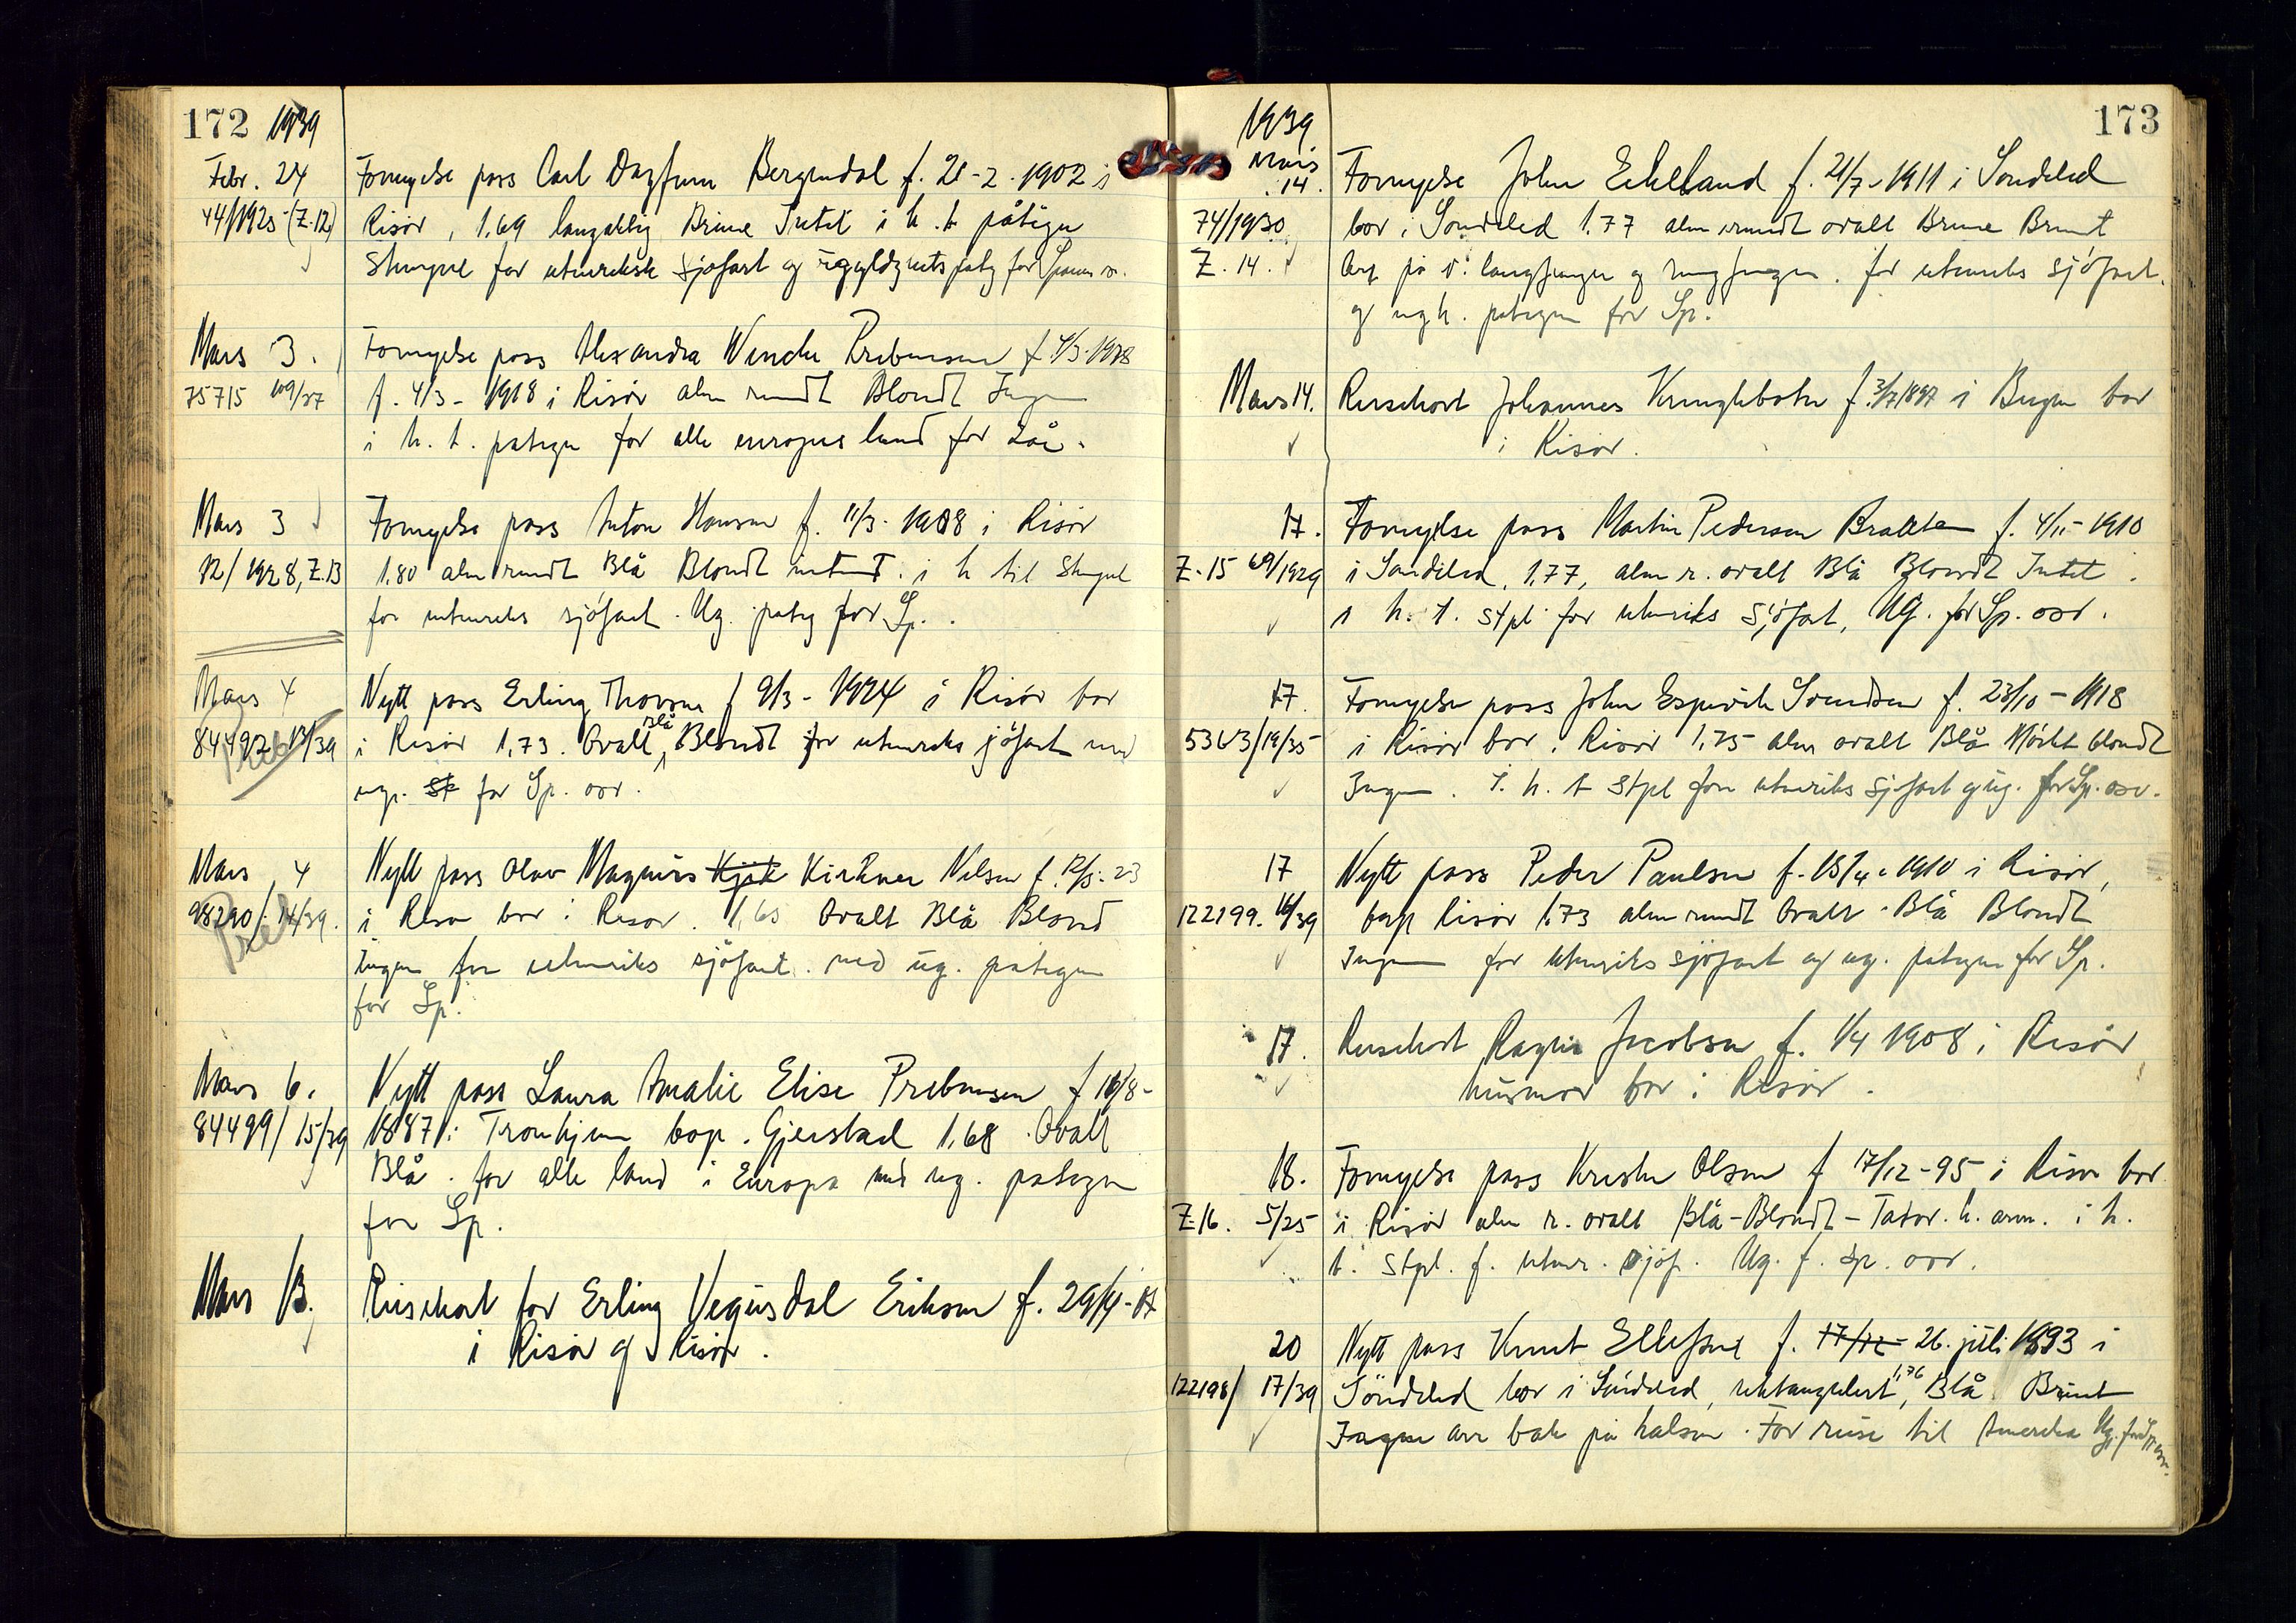 172 1939
Febr. 24 Fornyelse pass Carl Dagfinn Bergendal f. 21-2-1902 i
44/1925 (Z.12) Risør, 1.69 langaktig Brune Intet i h.t. påtegn
Stempel for utenriksk sjøfart og ugyldighets påtg for Spania o.
Mars 3. Fornyelse pass Alexandra Wencke Prebensen f. 4/3-1918
75715 109/37 f. 4/3-1918 i Risør alm rundt Blondt Ingen
i h.t. pategn for alle europas land for 2 år.
Mars 3 Fornyelse pass Anton Hansen f. 11/3-1908 i Risør
12/1928, Z.13 1.80 alm rundt Blå Blondt intet. i h til Stempel
for utenriks sjøfart. Ug. pateg for Sp.
Mars 4 Nytt pass Erling Thorsen f 9/3-1924 i Risør bor
13/39 i Risør 1,73. Ovalt, Blå Blondt for utenriks sjøfart med
ugr. St for Sp. osv.
Mars 4 Nytt pass Olav Magnus Kirkner Nilsen f. 12/3-23
98290/14/39. i Risør bor i Risør. 1,65 Ovalt Blå Blond
Ingen for utenriks sjøfart. med ug. pategn
for Sp.
Mars 6. Nytt pass Laura Amalie Elise Prebensen f 16/8-
84499/15/39 1887 i Tronhjem bop. Gjerstad 1,68. Ovalt
Blå. for alle land i Europa med ug. pategn
for Sp.
Mars 13. Reisekort for Erling Vegusdal Eriksen f. 29/4-17
i Risør af Risør.
173
1939
Mars 14. Fornyelse John Eikeland f. 21/7-1911 i Sondeled
74/1930 bor i Sondeled 1.77 alm rundt ovalt Brune Brunt
Z.14. Arr på v. langfinger og ringfinger. for utenriks sjøfart.
og ug h. pategn for Sp.
Mars 14. Reisekort Johannes Kringlebotn f. 3/7 1897 i Bergen bor
i Risør.
17. Fornyelse pass Martin Pedersen Bratten f. 4/11-1910
Z.15 69/1929 i Sondeled, 1,77, alm r. ovalt Blå Blondt Intet.
i h.t. stpl for utenriks sjøfart, Ug. for Sp. osv.
17. Fornyelse pass John Espevik Svendsen f. 23/10-1918
5363/19/35 i Risør bor i Risør 1,75 alm ovalt Blå Mørkt blondt
Ingen. i h.t stpl for utenriks sjøfart og ug. for Sp. osv.
17 Nytt pass Peder Paulsen f. 15/4-1910 i Risør,
122199. 16/39 bop Risør 1,73 alm rundt Ovalt. Blå Blondt
Ingen for utenriks sjøfart og ug. pategn for Sp.
17. Reisekort Ragna Jacobsen f. 1/4 1908 i Risør
husmor bor i Risør.
18. Fornyelse pass Kristen Olsen f 17/12-95 i Risør bor
Z.16. 5/25 i Risør alm r. ovalt Blå-Blondt-Tator. h. arm. i h.
t. stpl. f. utenr. sjøf. Ug. f. Sp. osv.
20 Nytt pass Knut Ellefsen f. 17/12- 26. juli 1893 i
122198/17/39 Søndeled bor i Søndeled, rektangulert, 1,76 Blå Brunt
Ingen arr bak på halsen. For reise til Amerika Ug. for Sp. osv.